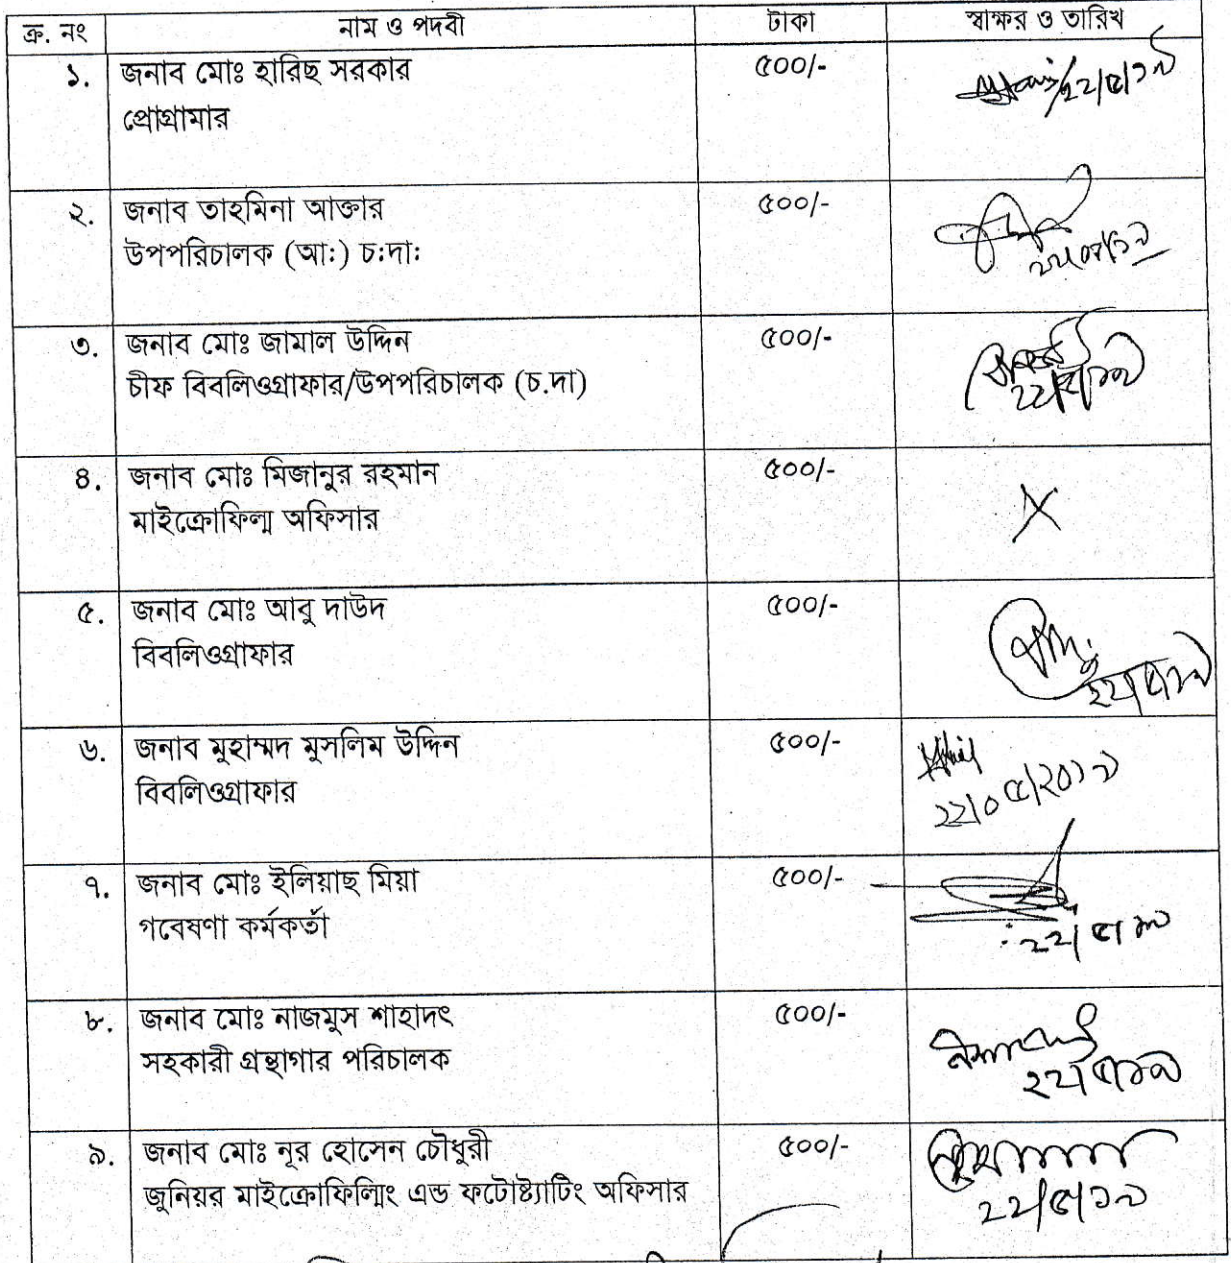 ক্র. নং নাম ও পদবী টাকা স্বাক্ষর ও তারিখ
১. জনাব মোঃ হারিছ সরকার ৫০০/-
প্রোগ্রামার
২২/৫/১৯
২. জনাব তাহমিনা আক্তার ৫০০/-
উপপরিচালক (আ:) চ:দা:
৩. জনাব মোঃ জামাল উদ্দিন ৫০০/-
চীফ বিবলিওগ্রাফার/উপপরিচালক (চ.দা)
২২/৫/১৯
৪. জনাব মোঃ মিজানুর রহমান ৫০০/-
মাইক্রোফিল্ম অফিসার
৫. জনাব মোঃ আবু দাউদ ৫০০/-
বিবলিওগ্রাফার
২২/৫/১৯
৬. জনাব মুহাম্মদ মুসলিম উদ্দিন ৫০০/-
বিবলিওগ্রাফার
২২/০৫/২০১৯
৭. জনাব মোঃ ইলিয়াছ মিয়া ৫০০/-
গবেষণা কর্মকর্তা
২২/৫/১৯
৮. জনাব মোঃ নাজমুস শাহাদৎ ৫০০/-
সহকারী গ্রন্থাগার পরিচালক
২২/৫/১৯
৯. জনাব মোঃ নূর হোসেন চৌধুরী ৫০০/-
জুনিয়র মাইক্রোফিল্মিং এন্ড ফটোষ্ট্যাটিং অফিসার
২২/৫/১৯